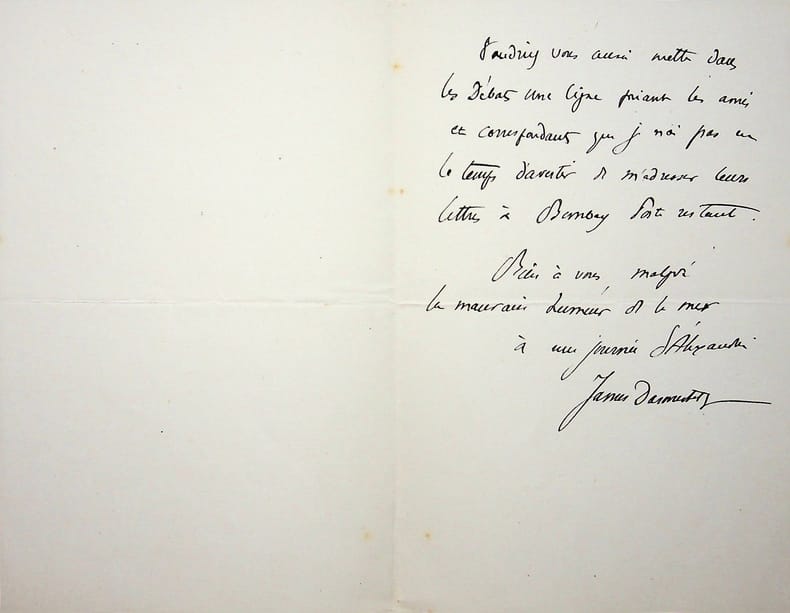 Voudriez vous aussi mettre dans
les Débats une ligne priant les amis
et correspondants que je n'ai pas eu
le temps d'avertir de m'adresser leurs
lettres à Bombay Poste restante.
Bien à vous malgré
la mauvaise humeur de la mer
à une journée d'Alexandrie
James Darmesteter